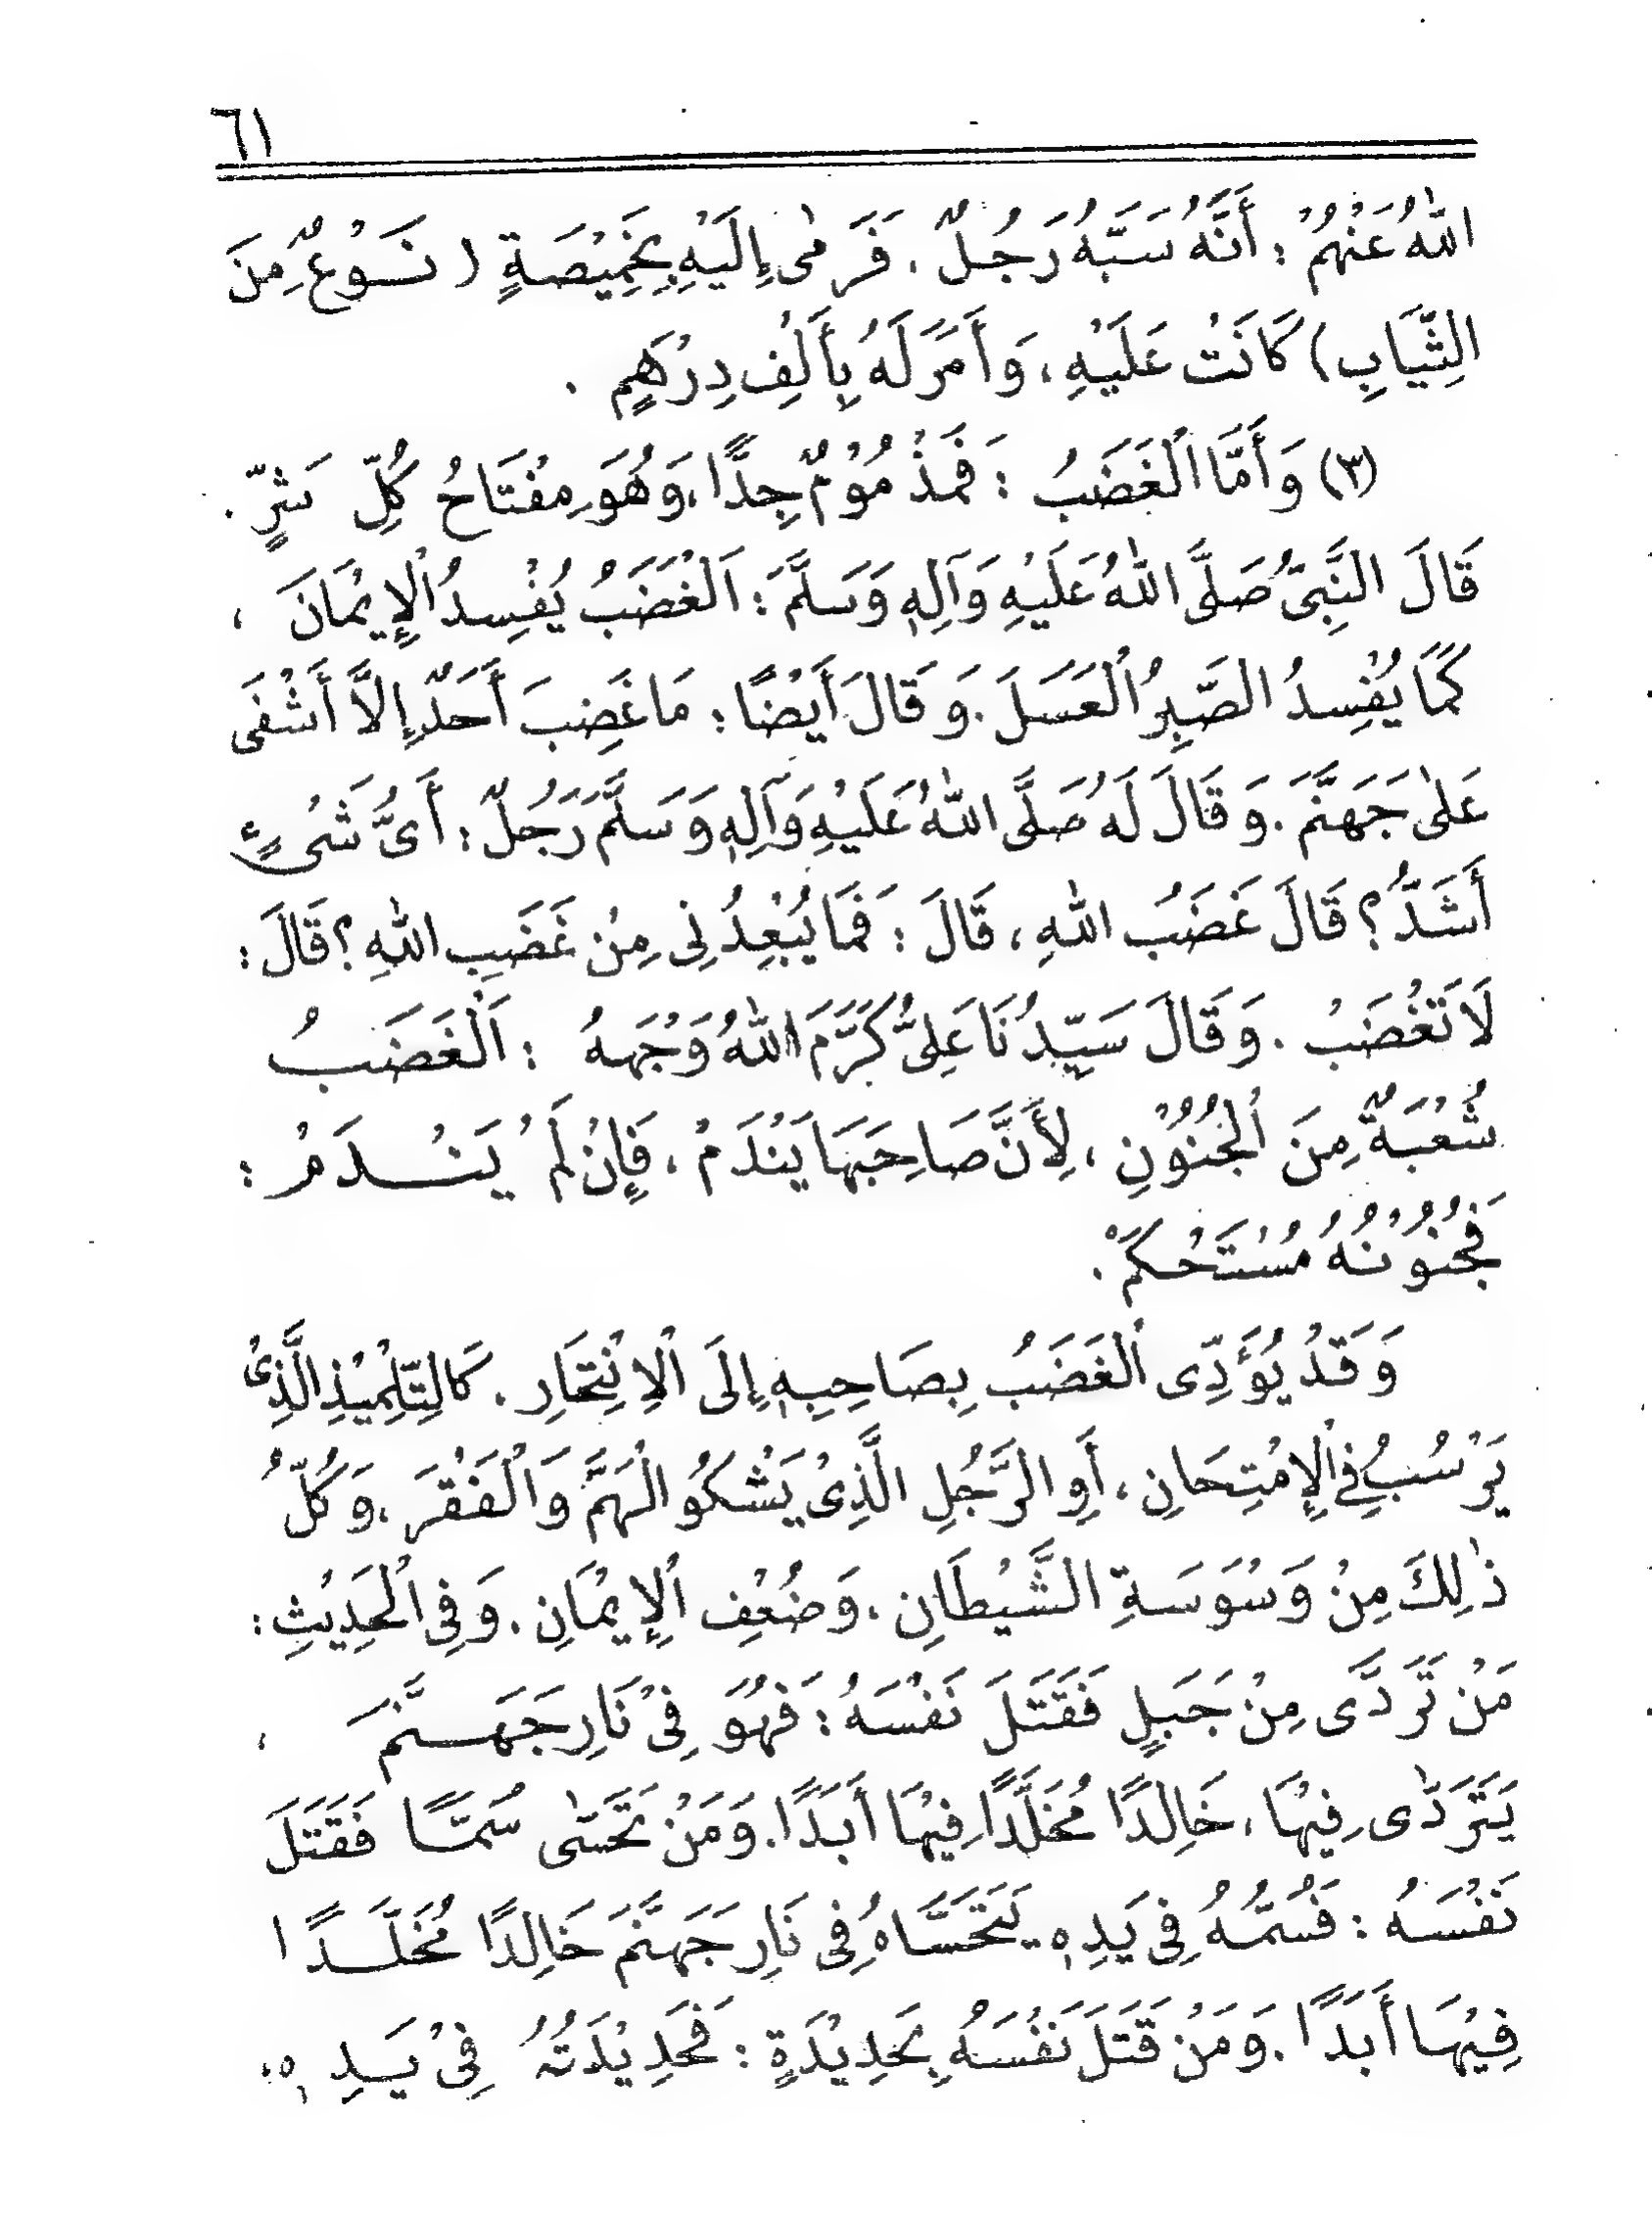 ٦١
اللهُ عَنْهُمْ : أَنَّهُ سَبَّهُ رَجُلٌ ، فَرَمٰى إِلَيْهِ بِخَمِيْصَةٍ ( نَوْعٌ مِنَ
الثِّيَابِ ) كَانَتْ عَلَيْهِ ، وَأَمَرَ لَهُ بِأَلْفِ دِرْهَمٍ .
(٣) وَأَمَّا الْغَضَبُ : فَمَذْمُوْمٌ جِدًّا ، وَهُوَ مِفْتَاحُ كُلِّ شَرٍّ .
قَالَ النَّبِىُّ صَلَّى اللهُ عَلَيْهِ وَآلِهِ وَسَلَّمَ : اَلْغَضَبُ يُفْسِدُ الْإِيْمَانَ ،
كَمَا يُفْسِدُ الصَّبِرُ الْعَسَلَ . وَقَالَ أَيْضًا : مَا غَضِبَ أَحَدٌ إِلاَّ أَشْفَى
عَلٰى جَهَنَّمَ . وَقَالَ لَهُ صَلَّى اللهُ عَلَيْهِ وَآلِهِ وَسَلَّمَ رَجُلٌ : أَىُّ شَىْءٍ
أَشَدُّ ؟ قَالَ غَضَبُ اللهِ ، قَالَ : فَمَا يُبْعِدُنِى مِنْ غَضَبِ اللهِ ؟ قَالَ :
لَا تَغْضَبْ . وَقَالَ سَيِّدُنَا عَلِىُّ كَرَّمَ اللهُ وَجْهَهُ : اَلْغَضَبُ
شُعْبَةٌ مِنَ الْجُنُوْنِ ، لِأَنَّ صَاحِبَهَا يَنْدَمُ ، فَإِنْ لَمْ يَنْدَمْ :
فَجُنُوْنُهُ مُسْتَحْكَمٌ .
وَقَدْ يُؤَدِّى الْغَضَبُ بِصَاحِبِهِ إِلَى الْاِنْتِحَارِ . كَالتِّلْمِيْذِ الَّذِىْ
يَرْسُبُ فِى الْإِمْتِحَانِ ، أَوِ الرَّجُلِ الَّذِىْ يَشْكُو الْهَمَّ وَالْفَقْرَ ، وَكُلُّ
ذٰلِكَ مِنْ وَسْوَسَةِ الشَّيْطَانِ ، وَضُعْفِ الْإِيْمَانِ . وَفِى الْحَدِيْثِ :
مَنْ تَرَدَّى مِنْ جَبَلٍ فَقَتَلَ نَفْسَهُ : فَهُوَ فِىْ نَارِ جَهَنَّمَ ،
يَتَرَدّٰى فِيْهَا ، خَالِدًا مُخَلَّدًا فِيْهَا أَبَدًا . وَمَنْ تَحَسّٰى سُمًّا فَقَتَلَ
نَفْسَهُ : فَسُمُّهُ فِى يَدِهِ يَتَحَسَّاهُ فِى نَارِ جَهَنَّمَ خَالِدًا مُخَلَّدًا
فِيْهَا أَبَدًا . وَمَنْ قَتَلَ نَفْسَهُ بِحَدِيْدَةٍ : فَحَدِيْدَتُهُ فِىْ يَدِهِ ،